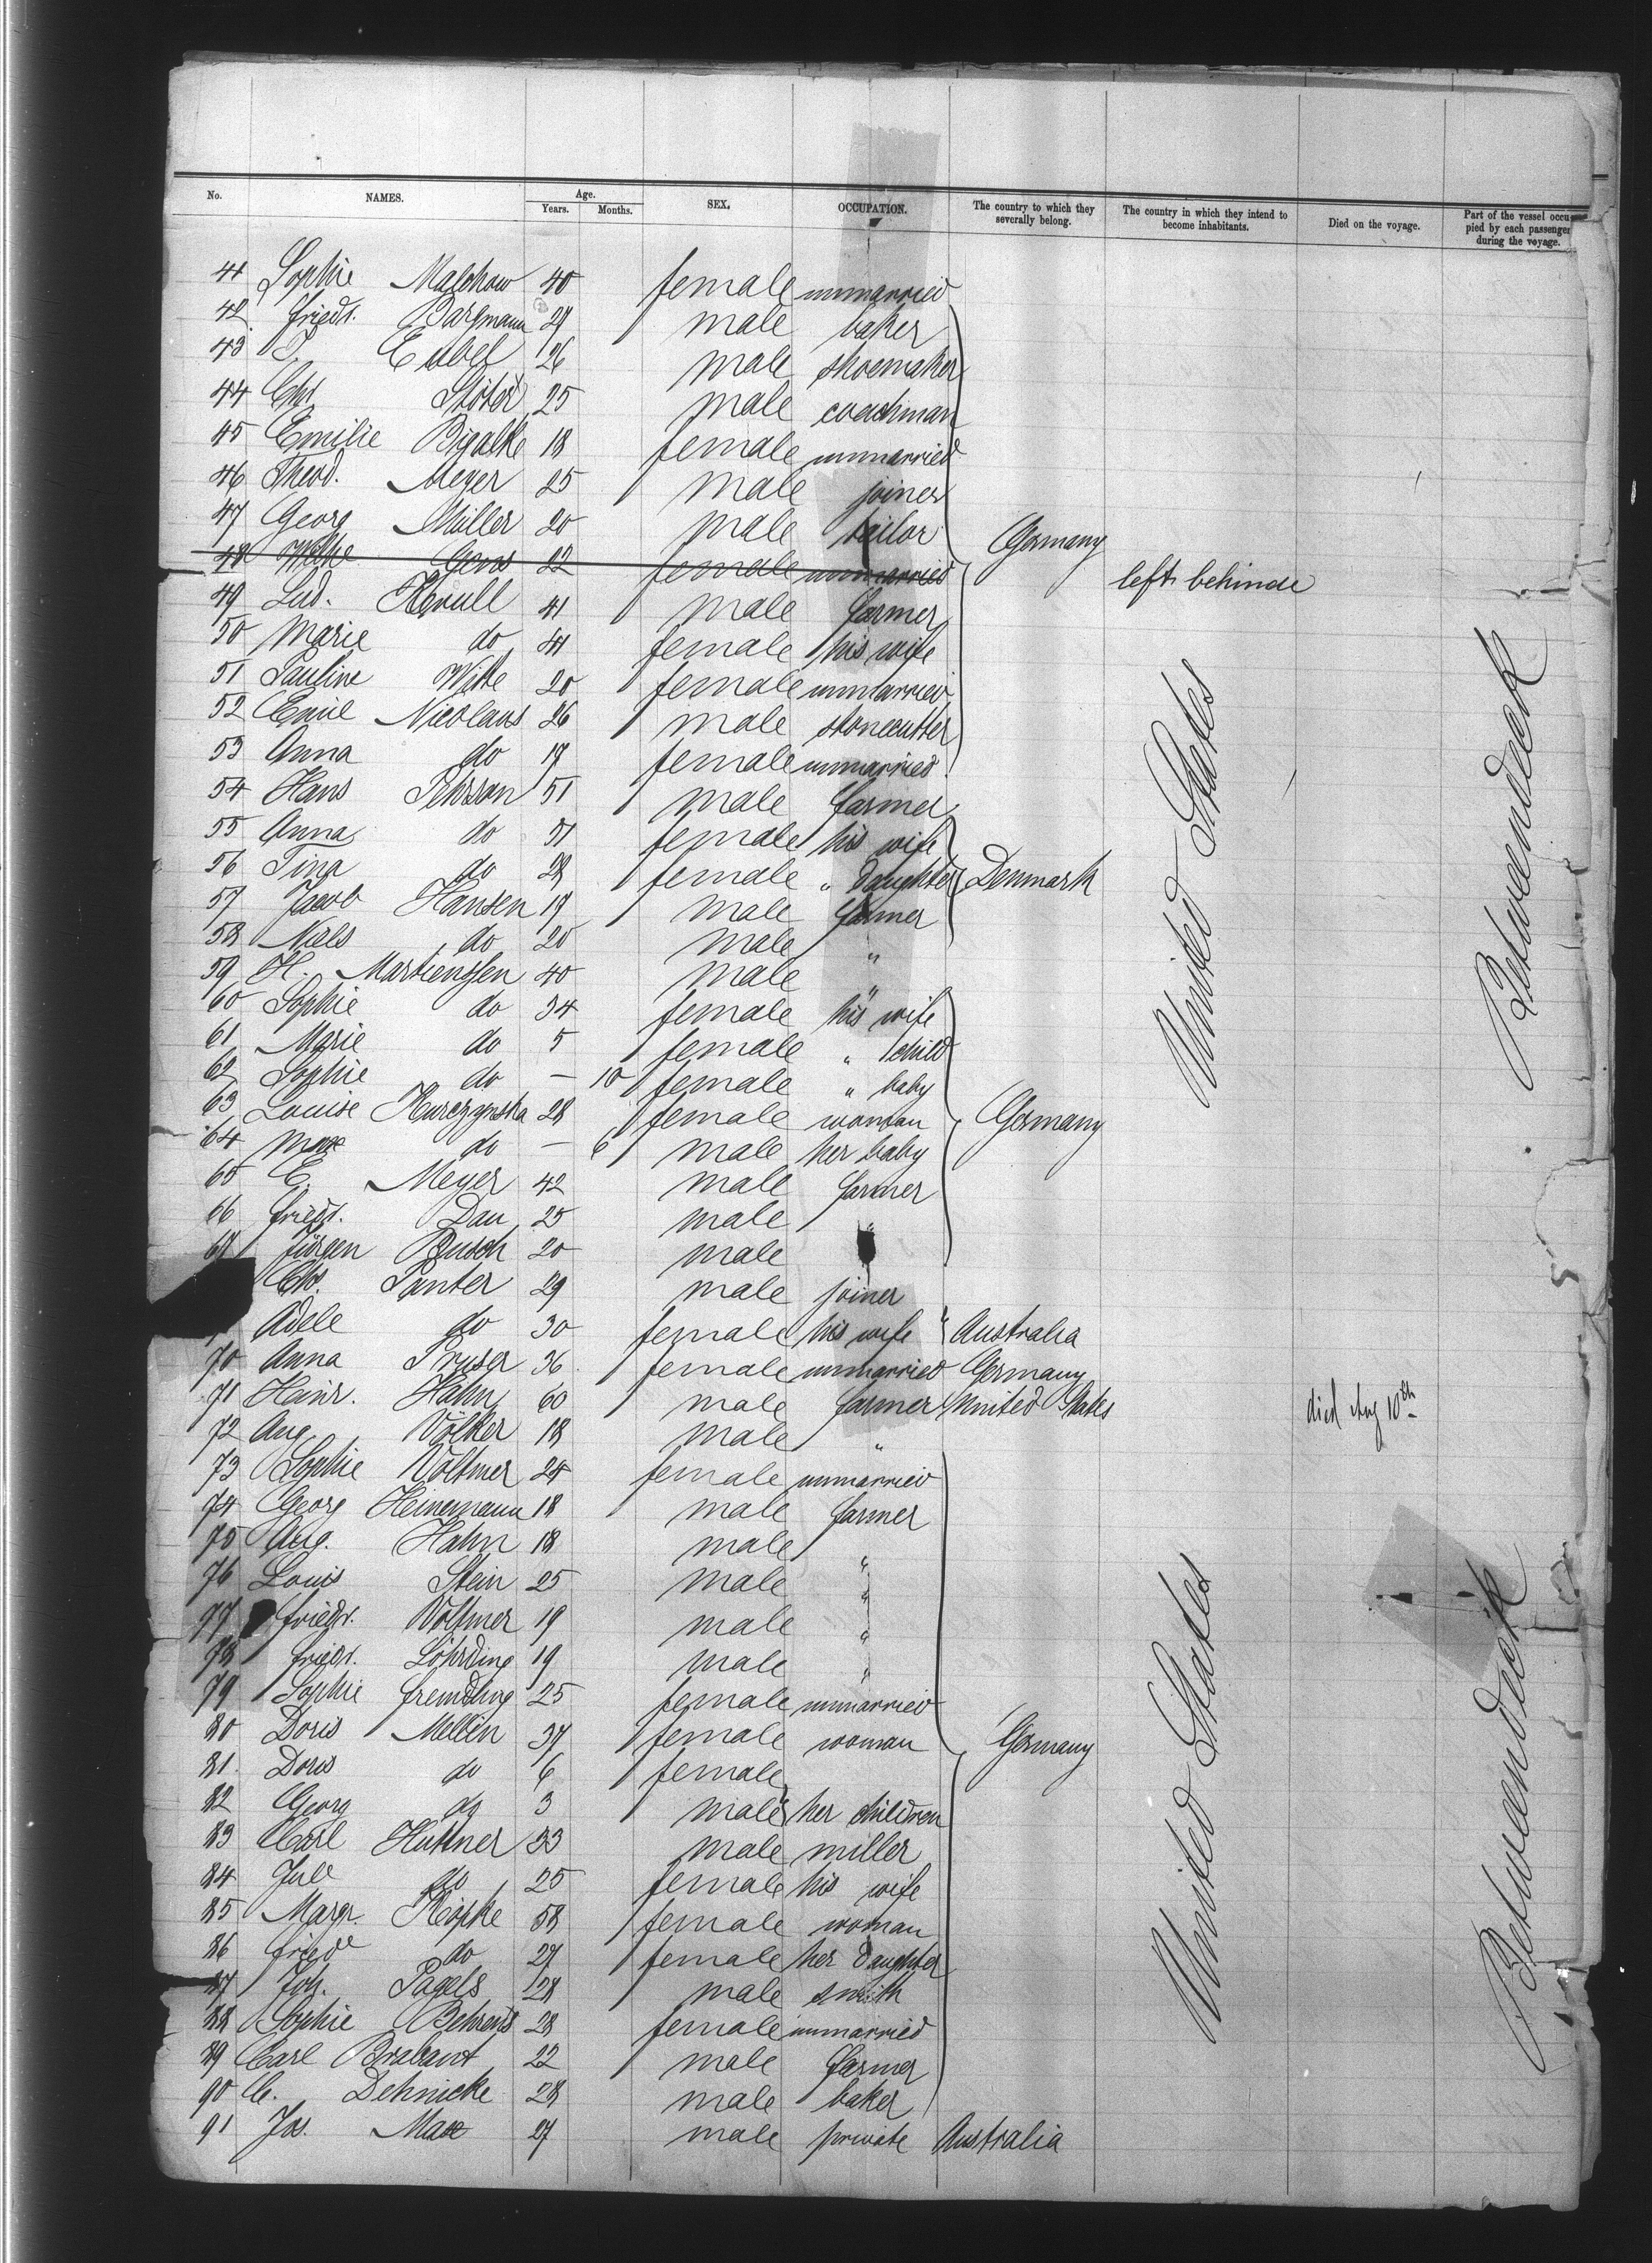 No. NAMES. Age. Years. Months. SEX. OCCUPATION. The country to which they severally belong. The country in which they intend to become inhabitants. Died on the voyage. Part of the vessel occupied by each passenger during the voyage.
41 Sophie Malchow 40 female unmarried
42 Friedr. Bargmann 29 male baker
43 J. 26 male shoemaker
44 Chr. Stöter 25 male coachman
45 Emilie Bigalke 18 female unmarried
46 Theod. Meyer 25 male joiner
47 Georg Müller 20 male tailor Germany
48 Gens 22 female unmarried left behinde
49 Lud. Krull 41 male farmer
50 Marie do 41 female his wife
51 Pauline Witte 20 female unmarried
52 Emil Nicolaus 26 male stonecutter
53 Anna do 17 female unmarried
54 Hans Pehrson 51 male farmer
55 Anna do 51 female his wife
56 Tina do 28 female " daughter Denmark
57 Jacob Hansen 19 male farmer
58 Niels do 20 male "
59 H. Martienssen 40 male "
60 Sophie do 34 female his wife
61 Marie do 5 female " child
62 Sophie do — 10 female " baby
63 Louise Kurczynska 28 female woman Germany
64 Max do — 6 male her baby
65 E. Meyer 42 male farmer
66 Friedr. Dau 25 male "
67 Jürgen Busch 20 male
Chr. Panter 29 male joiner
Adele do 30 female his wife Australia
70 Anna Pruser 36 female unmarried Germany
71 Heinr. Hahn 60 male farmer United States died Aug 10th
72 Aug. Völker 18 male "
73 Sophie Voltmer 24 female unmarried
74 Georg Heinemann 18 male farmer
75 Aug. Hahn 18 male "
76 Louis Stein 25 male "
77 Friedr. Voltmer 19 male "
78 Friedr. Löhrding 19 male "
79 Sophie Fremdling 25 female unmarried
80 Doris Mellin 37 female woman Germany
81 Doris do 6 female
82 Georg do 3 male her children
83 Carl Huttner 33 male miller
84 Jul do 25 female his wife
85 Margr. Köpke 58 female woman
86 Friede do 27 female her daughter
87 Joh. Pagels 28 male smith
88 Sophie Behrens 28 female unmarried
89 Carl Brabant 22 male farmer
90 C. Dehnicke 28 male baker
91 Jos. Max 27 male private Australia
United States
Betweendeck
United States
Betweendeck